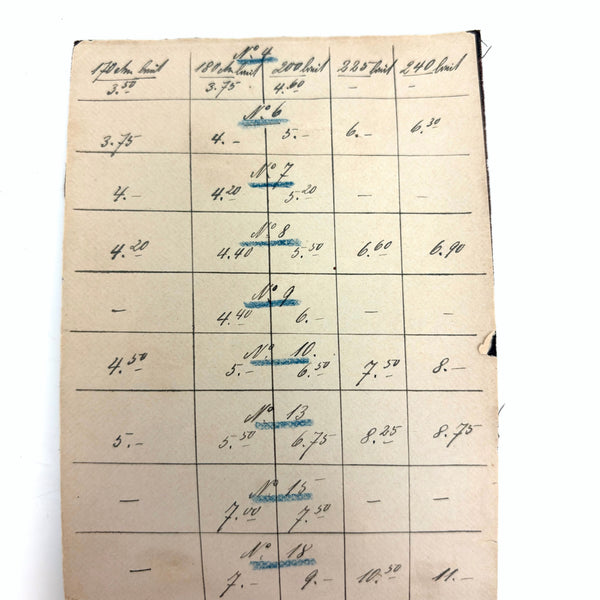 No 4
170 ctm breit 180 ctm breit 200 breit 225 breit 240 breit
3.50 3.75 4.60 – –
No 6
3.75 4.– 5.– 6.– 6.30
No 7
4.– 4.20 5.20 – –
No 8
4.20 4.40 5.50 6.60 6.90
No 9
– 4.40 6.– – –
No 10.
4.50 5.– 6.50 7.50 8.–
No 13
5.– 5.50 6.75 8.25 8.75
No 15
– 7.00 7.50 – –
No. 18
– 7.– 9.– 10.50 11.–